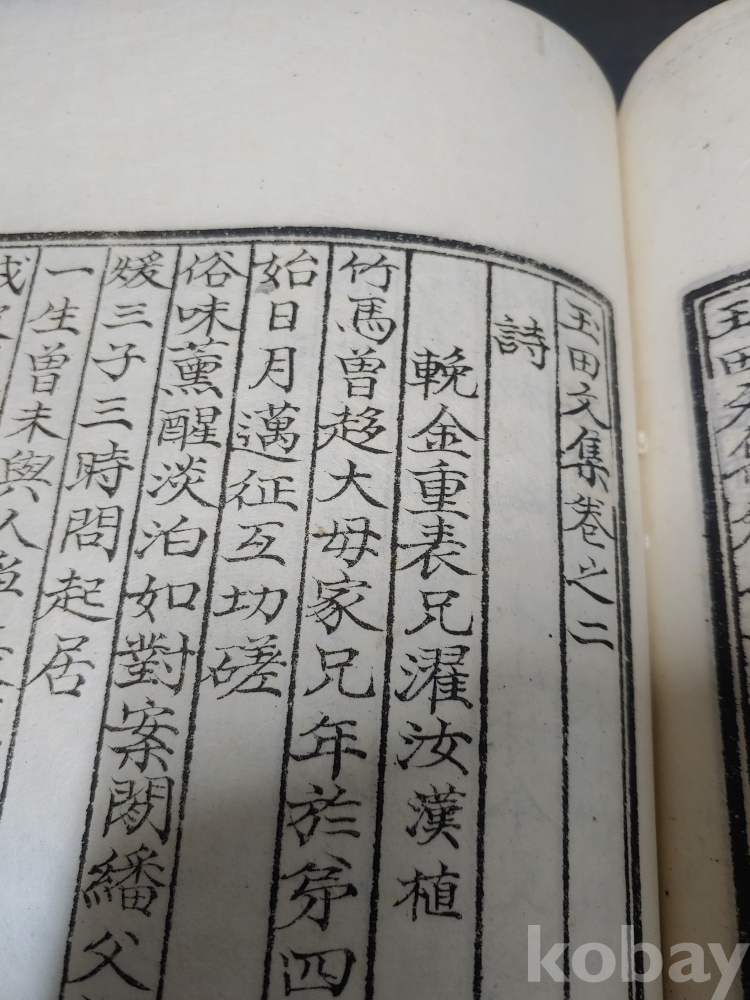 玉田文集卷之二
詩
輓金重表兄濯汝漢植
竹馬曾趍大母家兄年於弟四
始日月邁征互切磋
俗味薰醒淡泊如對案閱繙父
媛三子三時問起居
一生曾未與人
玉田文集卷
kobay